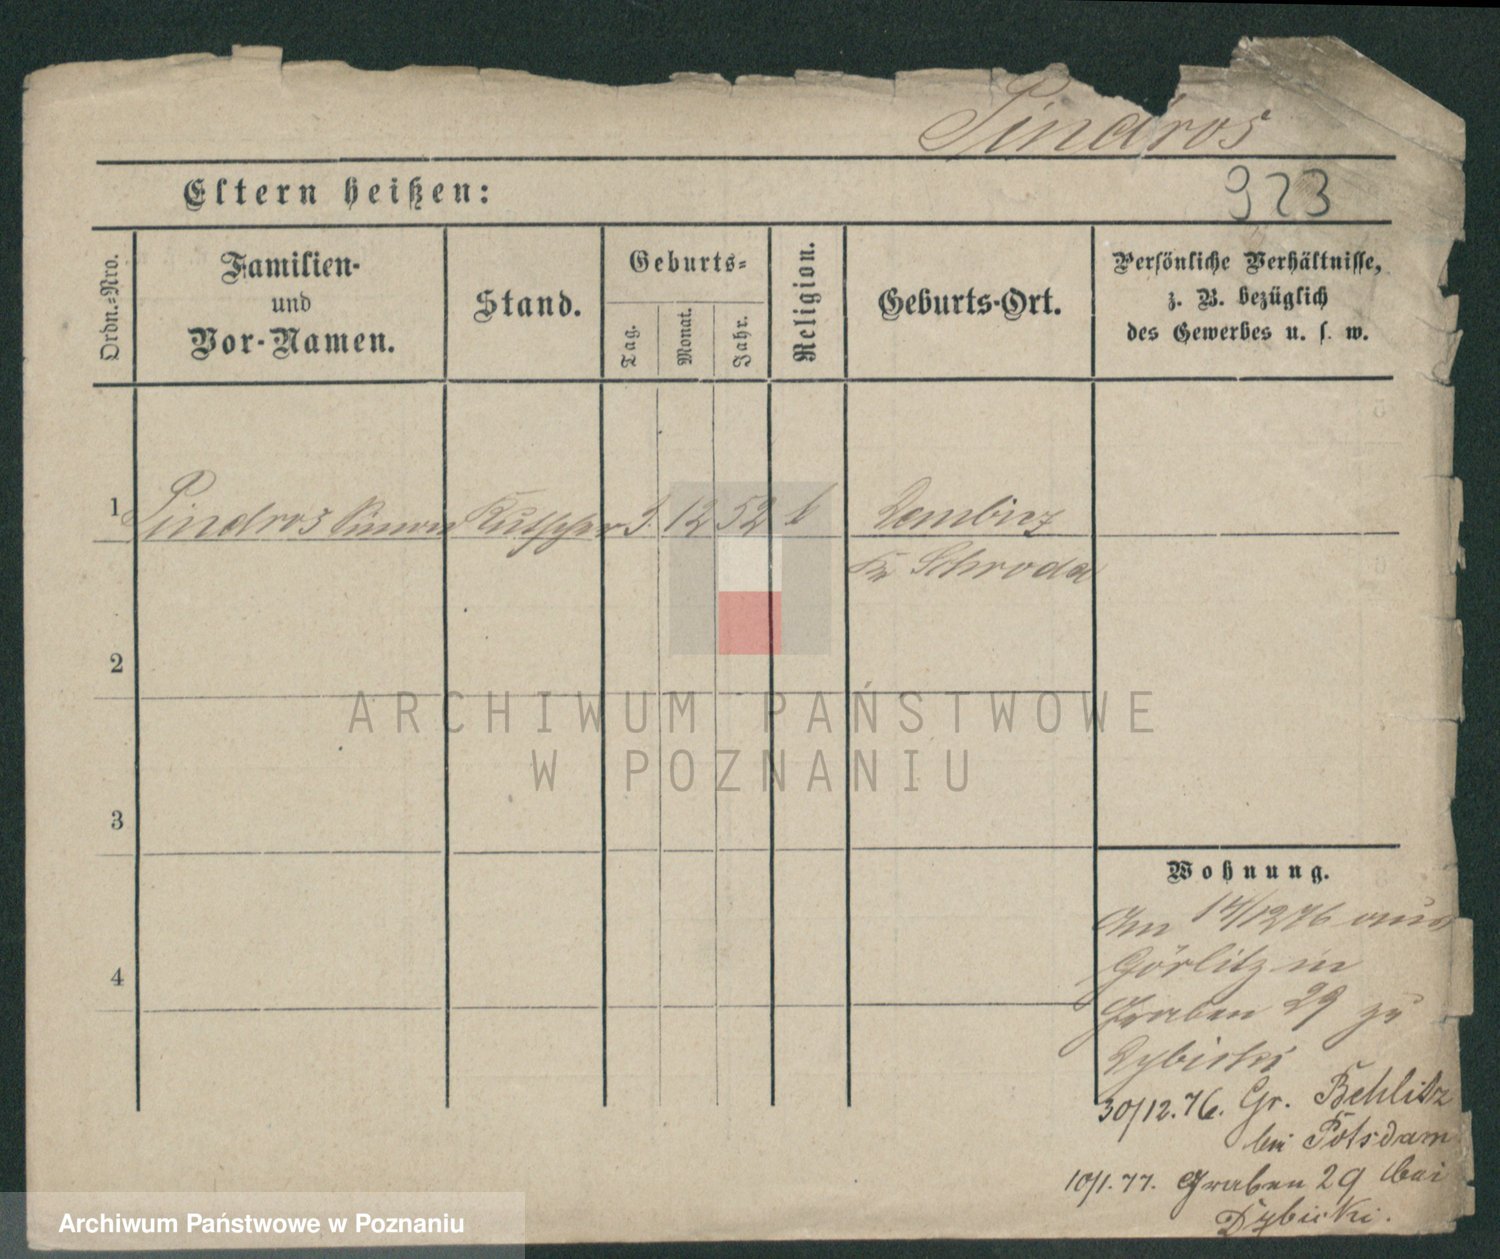 Pindros
Eltern heißen:
923
Ordn.-Nro.
Familien-
und
Vor-Namen.
Stand.
Geburts-
Tag.
Monat.
Jahr.
Religion.
Geburts-Ort.
Persönliche Verhältnisse,
z. B. bezüglich
des Gewerbes u. s. w.
1 Pindros Simon Kutscher 12 52 k
Kr Schroda
2
3
4
Wohnung.
Am 14/12 76 aus
Görlitz in
Graben 29 zu
Dybicki
30/12.76. Gr. Behlitz
bei Potsdam
10/1.77. Graben 29 bei
Dybicki.
ARCHIWUM PAŃSTWOWE
W POZNANIU
Archiwum Państwowe w Poznaniu